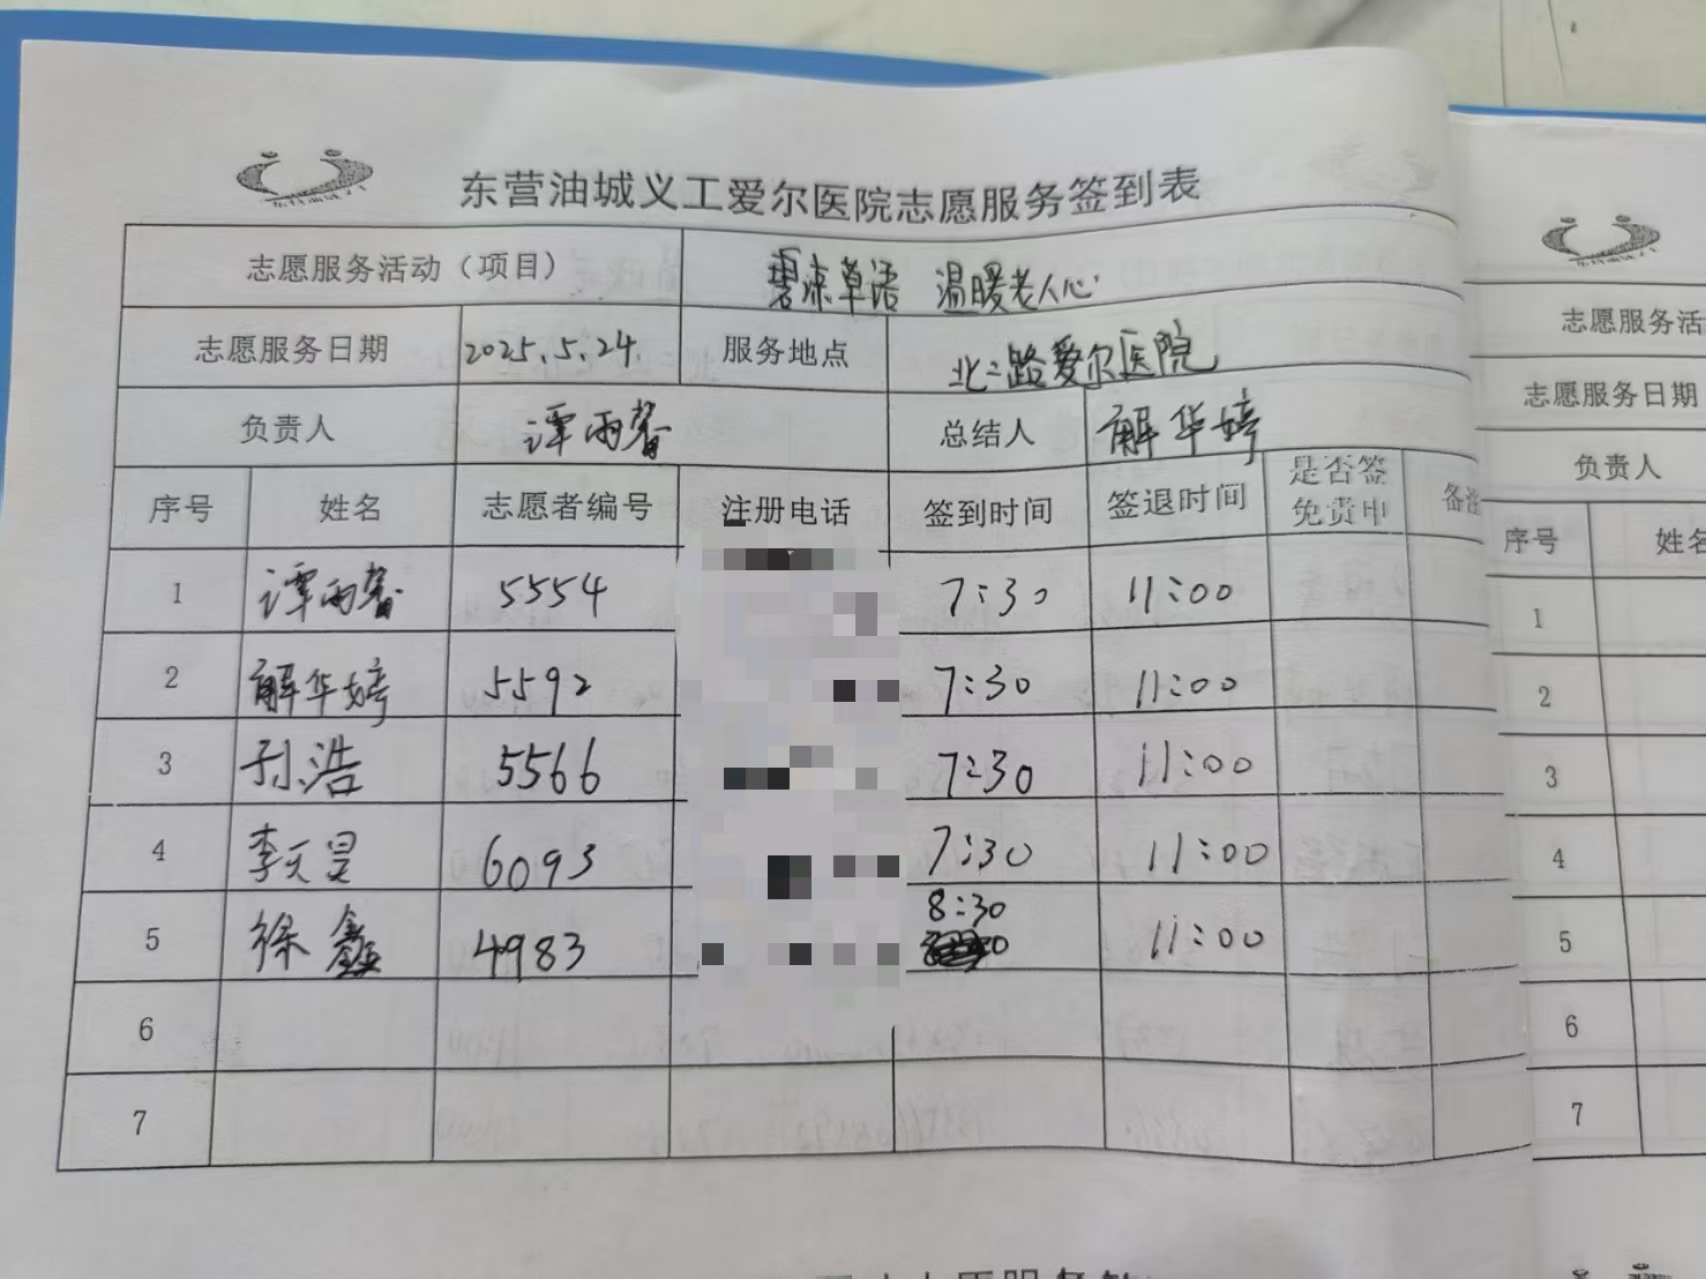 东营油城义工爱尔医院志愿服务签到表
志愿服务活动（项目） 碧凉草语 温暖老人心
志愿服务日期 2025.5.24 服务地点 北二路爱尔医院
负责人 谭雨馨 总结人 解华婷
序号 姓名 志愿者编号 注册电话 签到时间 签退时间 是否签免责申 备注
1 谭雨馨 5554 7:30 11:00
2 解华婷 5592 7:30 11:00
3 孙浩 5566 7:30 11:00
4 李天昱 6093 7:30 11:00
5 徐鑫 4983 8:30 11:00
6
7
志愿服务活
志愿服务日期
负责人
序号 姓名
1
2
3
4
5
6
7